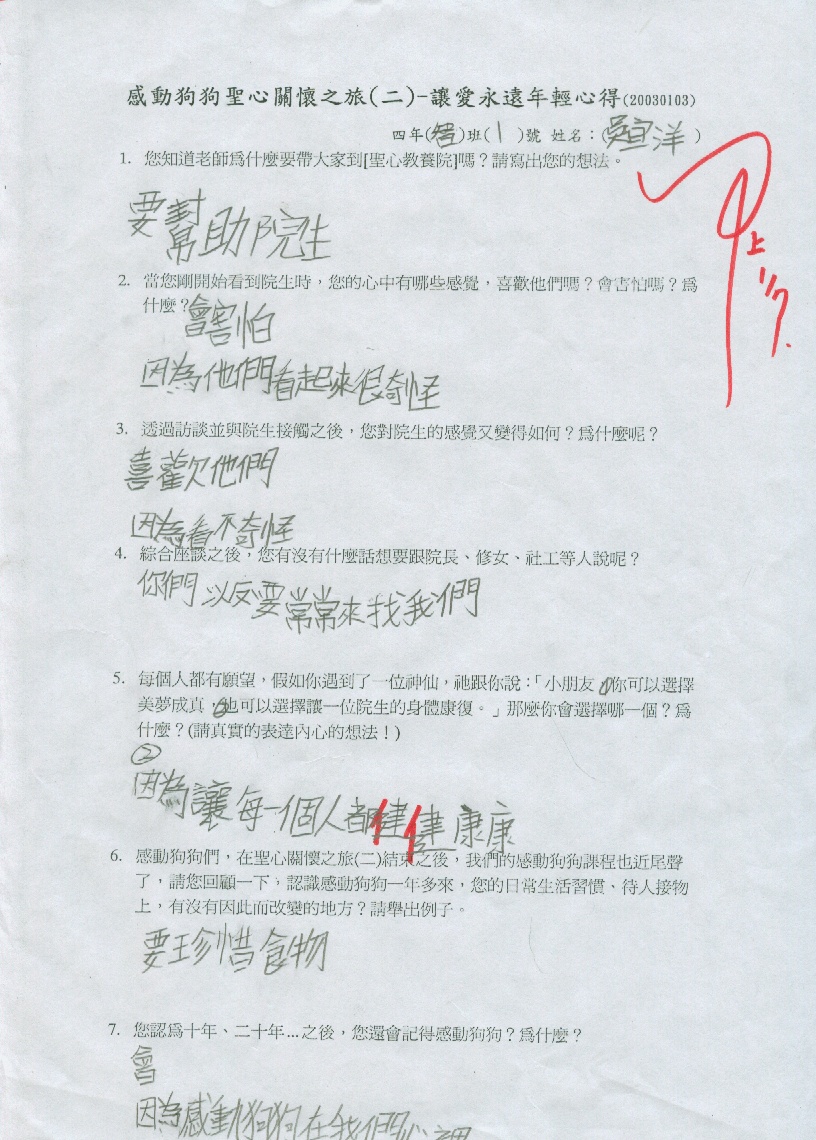 感動狗狗聖心關懷之旅(二)-讓愛永遠年輕心得(20030103)
四年(智)班(1)號 姓名：(吳宣洋)
1. 您知道老師為什麼要帶大家到[聖心教養院]嗎？請寫出您的想法。
要幫助院生
中上 1/7.
2. 當您剛開始看到院生時，您的心中有哪些感覺，喜歡他們嗎？會害怕嗎？為
什麼？會害怕
因為他們看起來很奇怪
3. 透過訪談並與院生接觸之後，您對院生的感覺又變得如何？為什麼呢？
喜歡他們
因為看不奇怪
4. 綜合座談之後，您有沒有什麼話想要跟院長、修女、社工等人說呢？
你們以反要常常來找我們
5. 每個人都有願望，假如你遇到了一位神仙，祂跟你說：「小朋友 你可以選擇
美夢成真，也可以選擇讓一位院生的身體康復。」那麼你會選擇哪一個？為
什麼？(請真實的表達內心的想法！)
②
因為讓每一個人都健健康康
6. 感動狗狗們，在聖心關懷之旅(二)結束之後，我們的感動狗狗課程也近尾聲
了，請您回顧一下，認識感動狗狗一年多來，您的日常生活習慣、待人接物
上，有沒有因此而改變的地方？請舉出例子。
要珍惜食物
7. 您認為十年、二十年...之後，您還會記得感動狗狗？為什麼？
會
因為感動狗狗在我們心裡